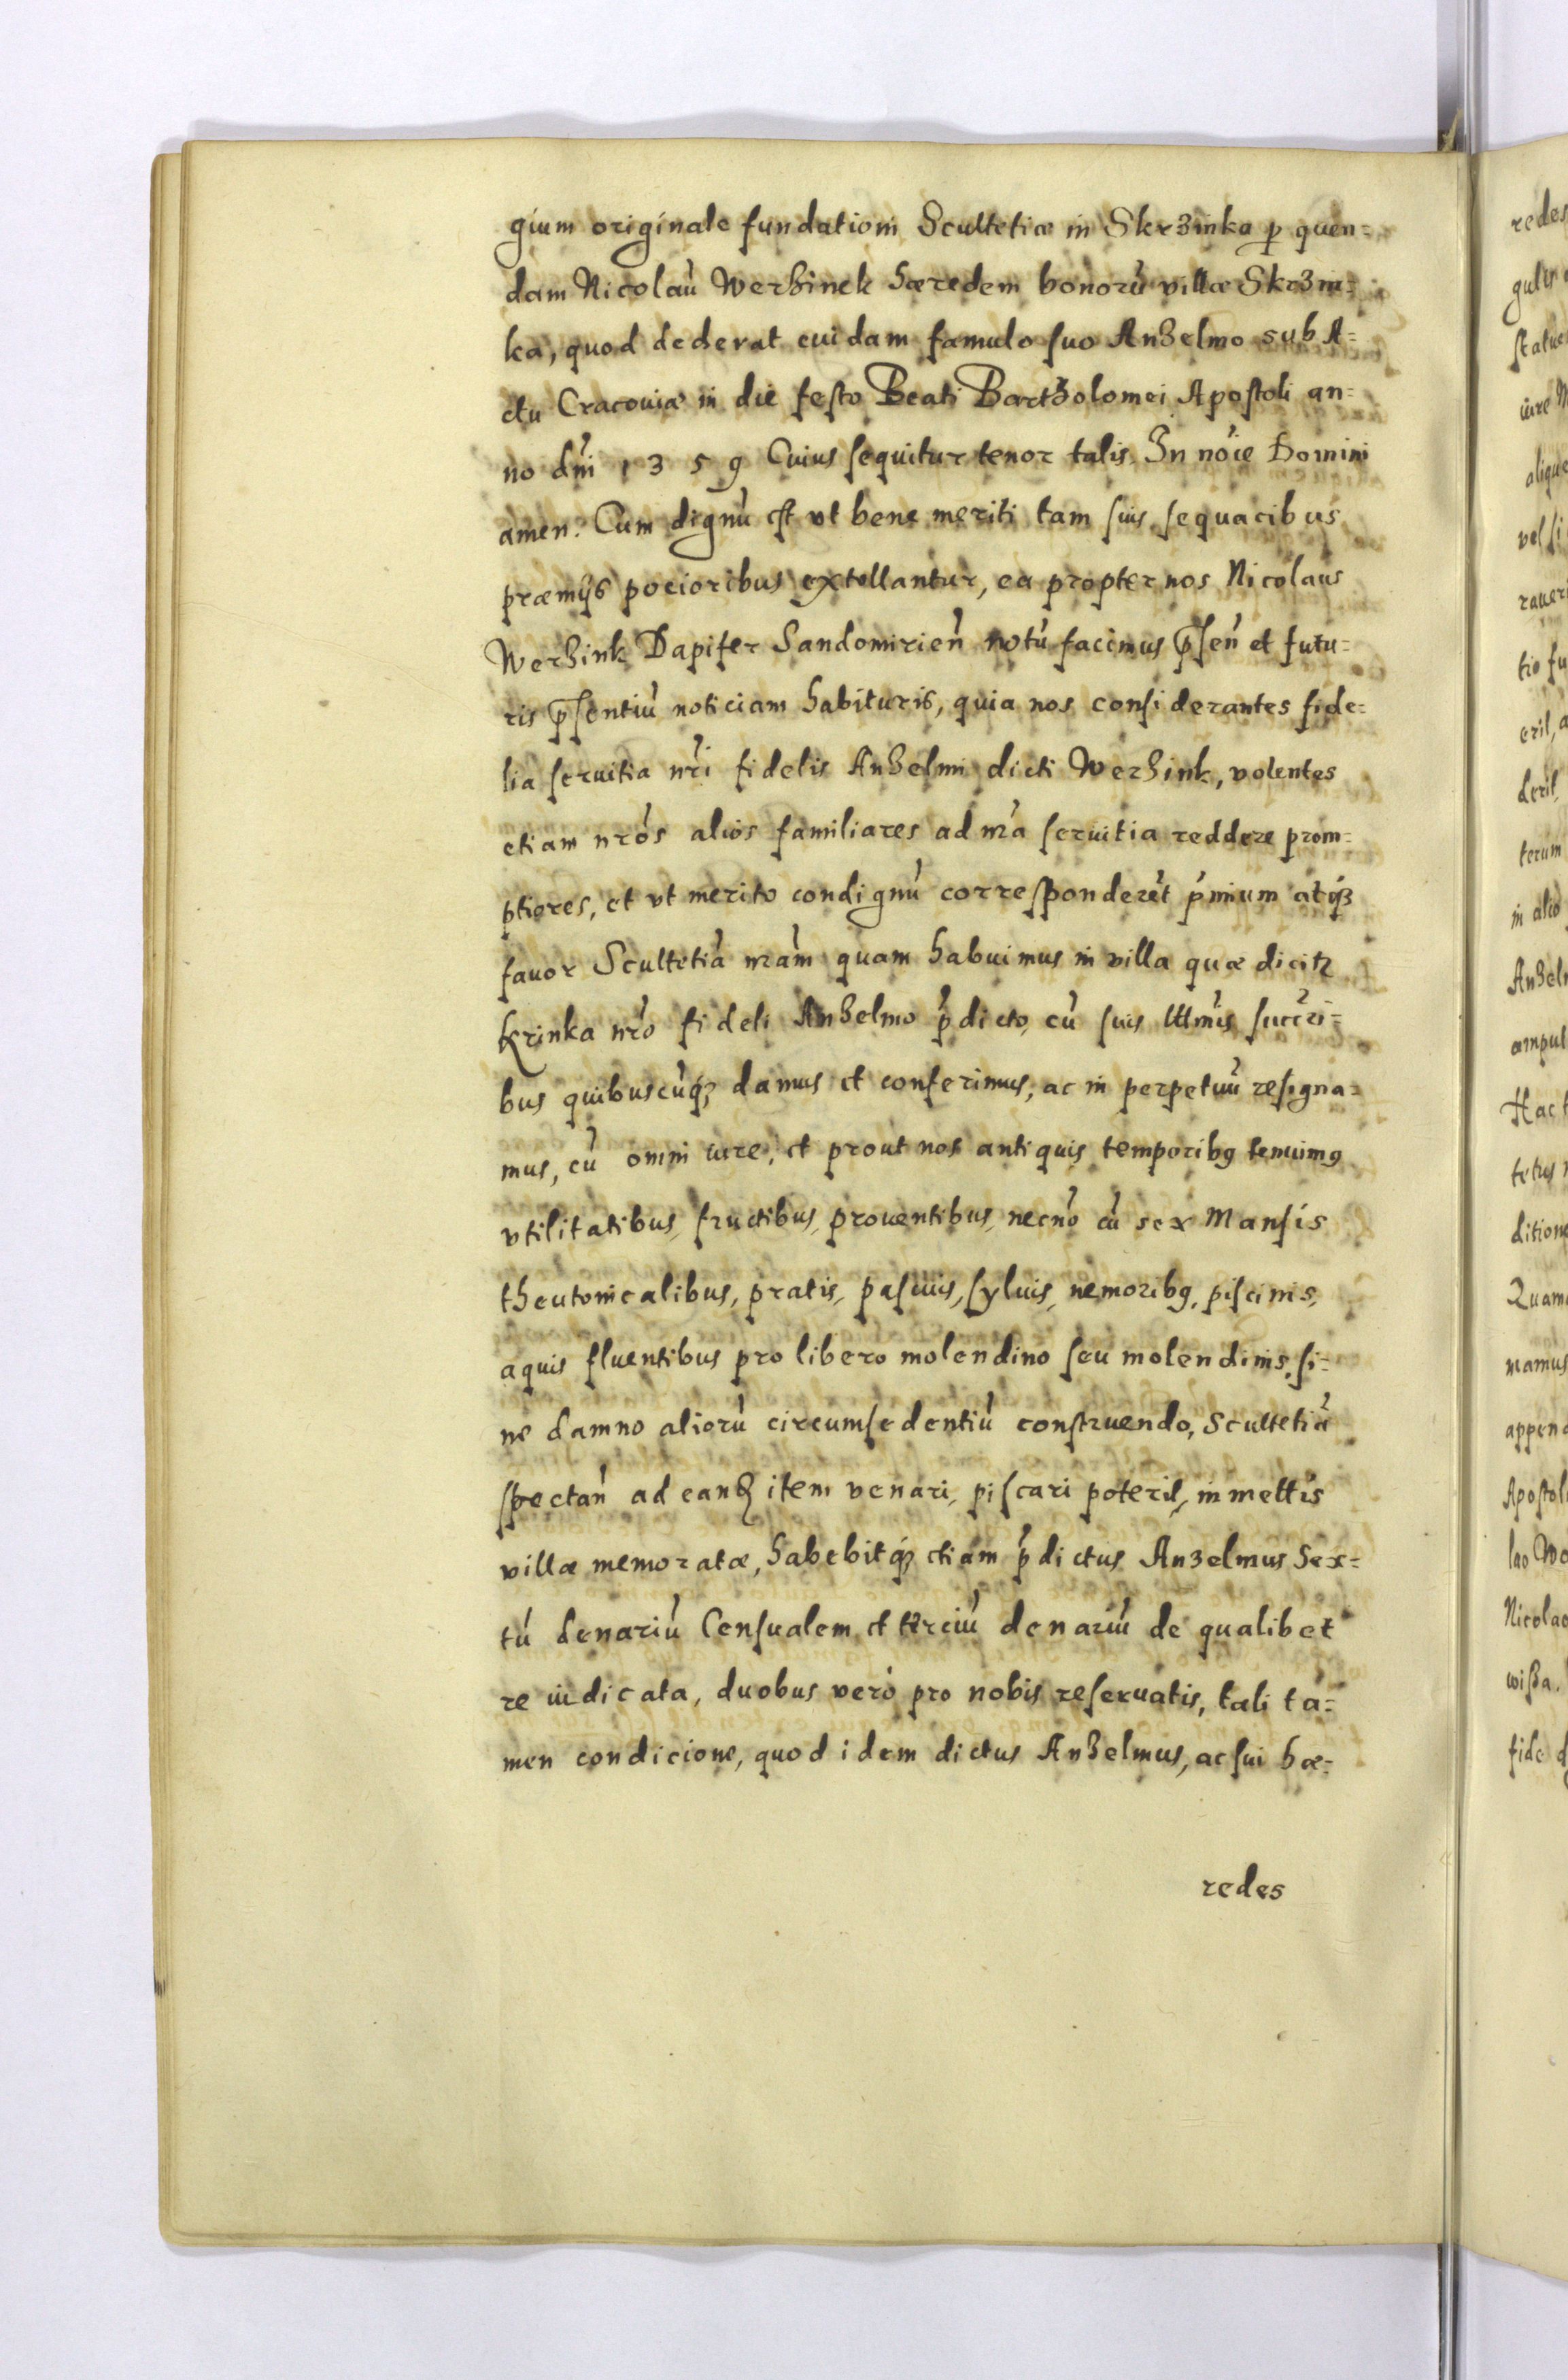 gium originale fundationi Scultetiæ in Skrzinka ꝑ quen=
dam Nicolaũ Werhinek hæredem bonorũ villæ Skrzin=
ka, quod dederat cuidam famulo suo Anzelmo sub A=
ctu Cracouiæ in die festo Beati Bartholomei Apostoli an=
no dñi 1359 Cuius sequitur tenor talis. In nõie Domini
amen. Cum dignũ est vt bene meriti tam suis sequacibus
præmijs pocioribus extollantur, ea propter nos Nicolaus
Werhink Dapifer Sandomirieñ notũ facimus p̃señ et futu=
ris p̃sentiũ noticiam habituris, quia nos considerantes fide=
lia seruitia nr̃i fidelis Anzelmi dicti Werhink, volentes
etiam nrõs alios familiares ad nr̃a seruitia reddere prom=
ptiores, et vt merito condignũ corresponderẽt p̃mium atq̃ʒ
fauor Scultetiã nrãm quam habuimus in villa quæ dicitꝛ
Krinka nrõ fideli Anzelmo p̃dicto, cũ suis lltim̃is succri=
bus quibuscũq̃ʒ damus et conferimus, ac in perpetuũ resigna=
mus, cũ omni iure, et prout nos antiquis temporibꝯ tenuimꝯ
vtilitatibus, fructibus, prouentibus, necnõ cũ sex Mansis
theutonicalibus, pratis, pascuis, syluis, nemoribꝯ, piscinis,
aquis fluentibus pro libero molendino seu molendinis, si=
ne damno aliorũ circumsedentiũ construendo, Scultetiã
spectañ ad eandꝫ item venari, piscari poterit, in mettis
villæ memoratæ, habebitq̃ʒ etiam p̃dictus Anzelmus Sex=
tũ denariũ Censualem et terciũ denariũ de qualibet
re iudicata, duobus verò pro nobis reseruatis, tali ta=
men condicione, quod idem dictus Anzelmus, ac sui hæ=
redes